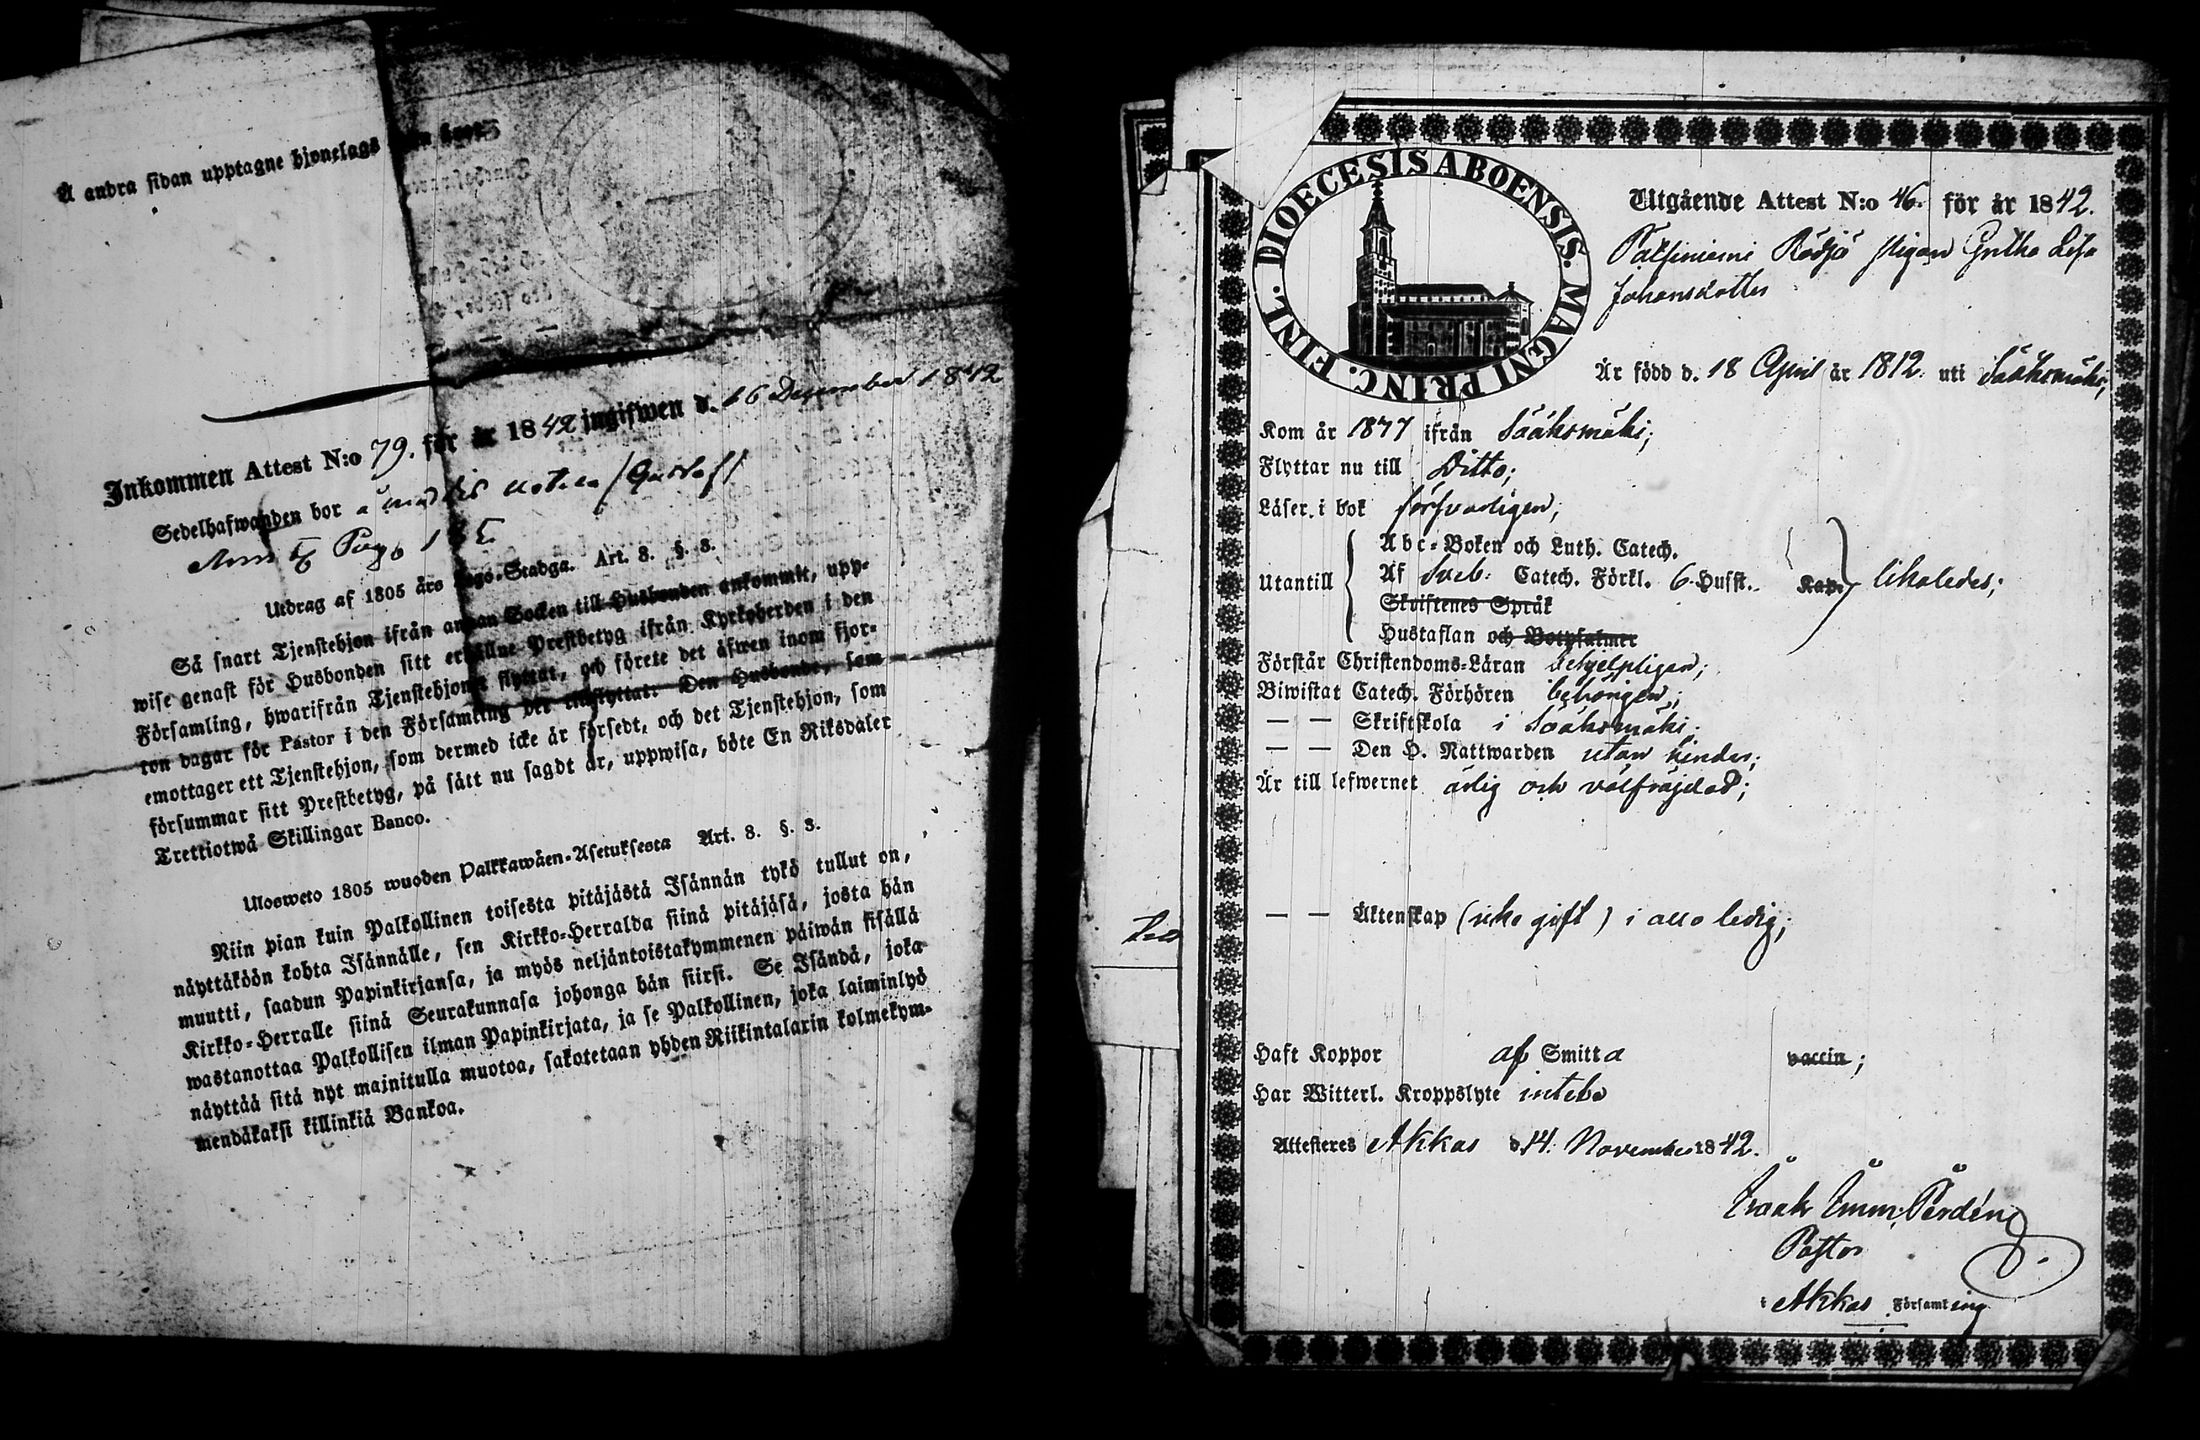 Å andra sidan upptagne hjonelags
Inkommen Attest N:o 79. för år 1842 ingifwen d. 16 December 1842
Sedelhafwanden bor
Pag.
Utdrag af 1805 års Lego-Stadga. Art. 8. §. 3.
Så snart Tjenstehjon ifrån annan Socken till Husbonden ankommit, upp-
wise genast för Husbonden sitt erhållne Prestbetyg ifrån Kyrkoherden i den
Församling, hwarifrån Tjenstehjonet flyttat, och förete det äfwen inom fjor-
ton dagar för Pastor i den Församling det tillflyttat: Den Husbonde, som
emottager ett Tjenstehjon, som dermed icke är försedt, och det Tjenstehjon, som
försummar sitt Prestbetyg, på sätt nu sagdt är, uppwisa, böte En Riksdaler
Trettiotwå Skillingar Banco.
Ulosweto 1805 wuoden Palkkawäen-Asetuksesta Art. 8. §. 3.
Niin pian kuin Palkollinen toisesta pitäjästä Isännän tykö tullut on,
näyttäköön kohta Isännälle, sen Kirkko-Herralda siinä pitäjäsä, josta hän
muutti, saadun Papinkirjansa, ja myös neljäntoistakymmenen päiwän sisällä
Kirkko-Herralle siinä Seurakunnasa johonga hän siirsi. Se Isändä, joka
wastanottaa Palkollisen ilman Papinkirjata, ja se Palkollinen, joka laiminlyö
näyttää sitä nyt mainitulla muotoa, sakotetaan yhden Riikintalarin kolmekym-
mendäkaksi killinkiä Bankoa.
DIOECESIS ABOENSIS. MAGNI PRINC. FINL.
Utgående Attest N:o 46. för år 1842.
Rödjö Pigan Gretha Lisa
Johansdotter
Är född d. 18 April år 1812. uti Sääksmäki,
Kom år ifrån Sääksmäki;
Flyttar nu till Ditto;
Läser i bok försvarligen;
Utantill
Abc-Boken och Luth. Catech.
Af Sveb. Catech. Förkl. 6. Husst. Kap. likaledes;
Skriftenes Språk
Hustaflan och Botpsalmer
Förstår Christendoms-Läran behjelpligen;
Biwistat Catech. Förhören behörigen;
— — Skriftskola i Sääksmäki;
— — Den H. Nattwarden utan hinder;
Är till lefwernet ärlig och välfräjdad;
— — Äktenskap (icke gift) i allo ledig;
Haft Koppor af Smitta vaccin;
Har Witterl. Kroppslyte
Attesteres Akkas d. 14. November 1842.
Isaak Imm.
Pastor
i Akkas Församling